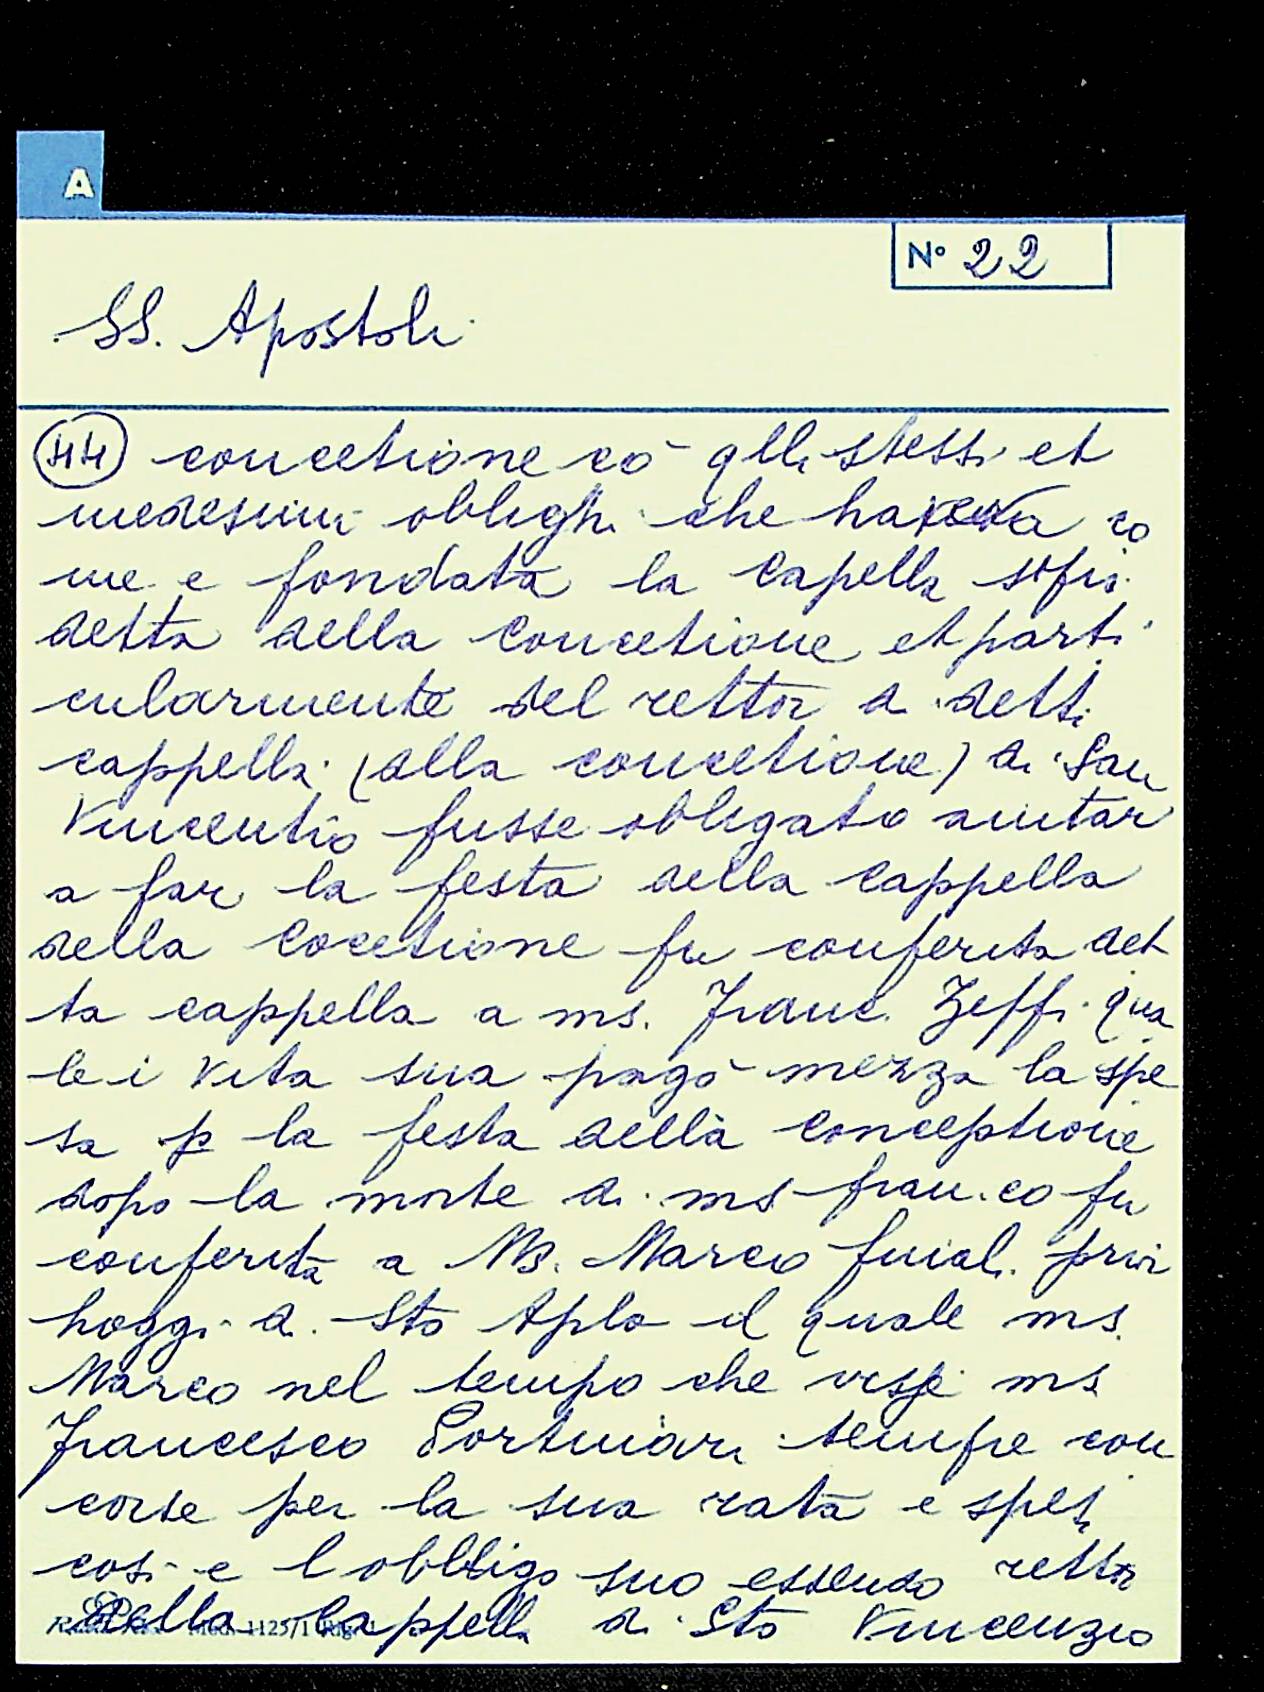 A
Nº 22
SS. Apostoli
44 concetione cō qlli stessi et
medesimi oblighi che haveva co
me e fondata la Capella sopra
detta della Concetione et parti
cularmente del rettor di detti
cappella (della concetione) di San
Vincentio fusse obligato aiutar
a far la festa della Cappella
della Cocetione fu conferita det
ta cappella a ms. Franc. Zeffi qua
le i vita sua pagò mezza la spe
sa p la festa della Conceptione
dopo la morte di ms fran.co fu
conferita a Ms. Marco prior
hoggi di Sto Aplo il quale ms.
Marco nel tempo che visse ms
Francesco Portinari sempre con
corse per la sua rata e spesi
cosi e l obbligo suo essendo rettor
della Cappella di Sto Vincenzo